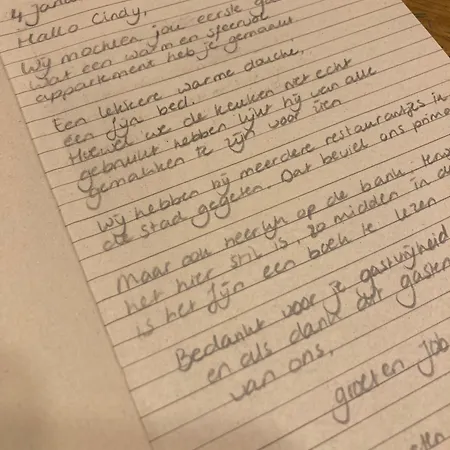 4 janua
Hallo Cindy,
Wij mochten jou eerste ga
wat een warm en sfeervol
appartement heb je gemaakt.
Een lekkere warme douche,
een fijn bed.
Hoewel we de keuken net echt
gebruikt hebben lijkt hij van alle
gemakken te zijn voor zien
Wij hebben bij meerdere restaurantjes in
de stad gegeten. Dat beviel ons prima
Maar ook heerlijk op de bank, terw
het hier stil is, zo midden in de
is het fijn een boek te lezen
Bedankt voor je gastvrijheid
en als dank dit gasten
van ons,
groeten Job